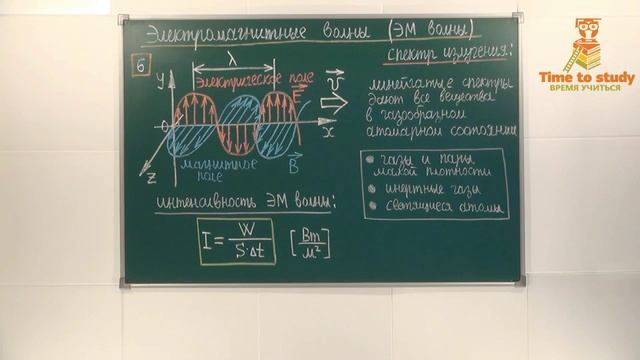 Электромагнитные волны (ЭМ волны)
6
λ
y
Электрическое поле
E
v
x
0
z
магнитное
поле
B
интенсивность ЭМ волны:
I = W / S·Δt [Вт / м²]
спектр излучения:
линейчатые спектры
дают все вещества
в газообразном
атомарном состоянии
газы и пары
малой плотности
инертные газы
светящиеся атомы
Time to study
ВРЕМЯ УЧИТЬСЯ